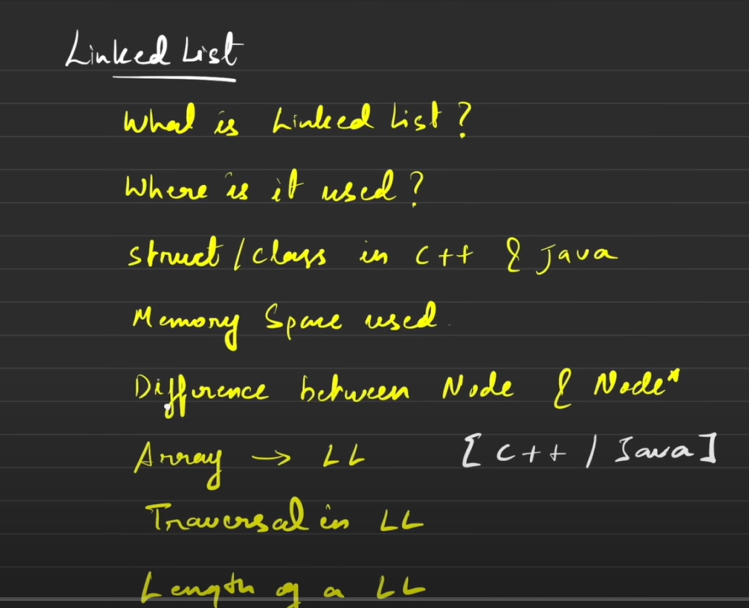 Linked List
What is Linked List?
Where is it used?
struct/class in C++ & Java
Memory Space used.
Difference between Node & Node*
Array → LL [C++ / Java]
Traversal in LL
Length of a LL